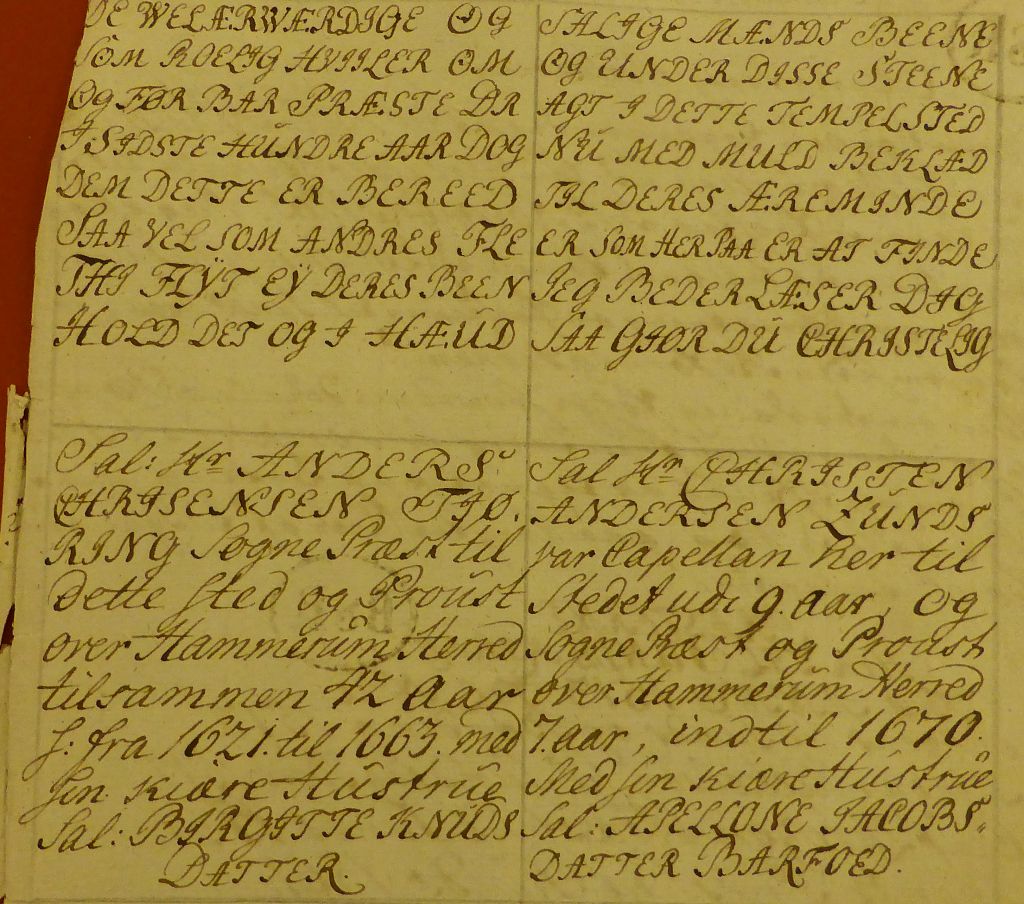 DE WELÆRWÆRDIGE OG SALIGE MÆNDS BEENE
SOM ROELIG HVIILER OM OG UNDER DISSE STEENE
OG FØR BAR PRÆSTE DR AGT I DETTE TEMPELSTED
I SIDSTE HUNDRE AAR DOG NU MED MULD BEKLÆD
DEM DETTE ER BEREED TIL DERES ÆREMINDE
SAA VEL SOM ANDRES FLE ER SOM HER PAA ER AT FINDE
THI FLŸT EŸ DERES BEEN JEG BEDER LÆSER DIG
HOLD DET OG I HÆUD SAA GIØR DU CHRISTELIG
Sal: Hr ANDERS
CHRISENSEN TIØ.
RING Sogne Præst til
dette sted og Proust
over Hammerum Herred
tilsammen 42 Aar
s: fra 1621. til 1663. med
sin kiære Hustrue
Sal: BIRGITTE KNUDS
DATTER.
Sal Hr CHRISTEN
ANDERSEN ZUNDS
var Capellan her til
Stedet udi 9. aar, og
Sogne Præst og Proust
over Hammerum Herred
7. aar, indtil 1670.
Med sin kiære Hustrue
Sal: APELLONE IACOBS„
DATTER BARFOED.